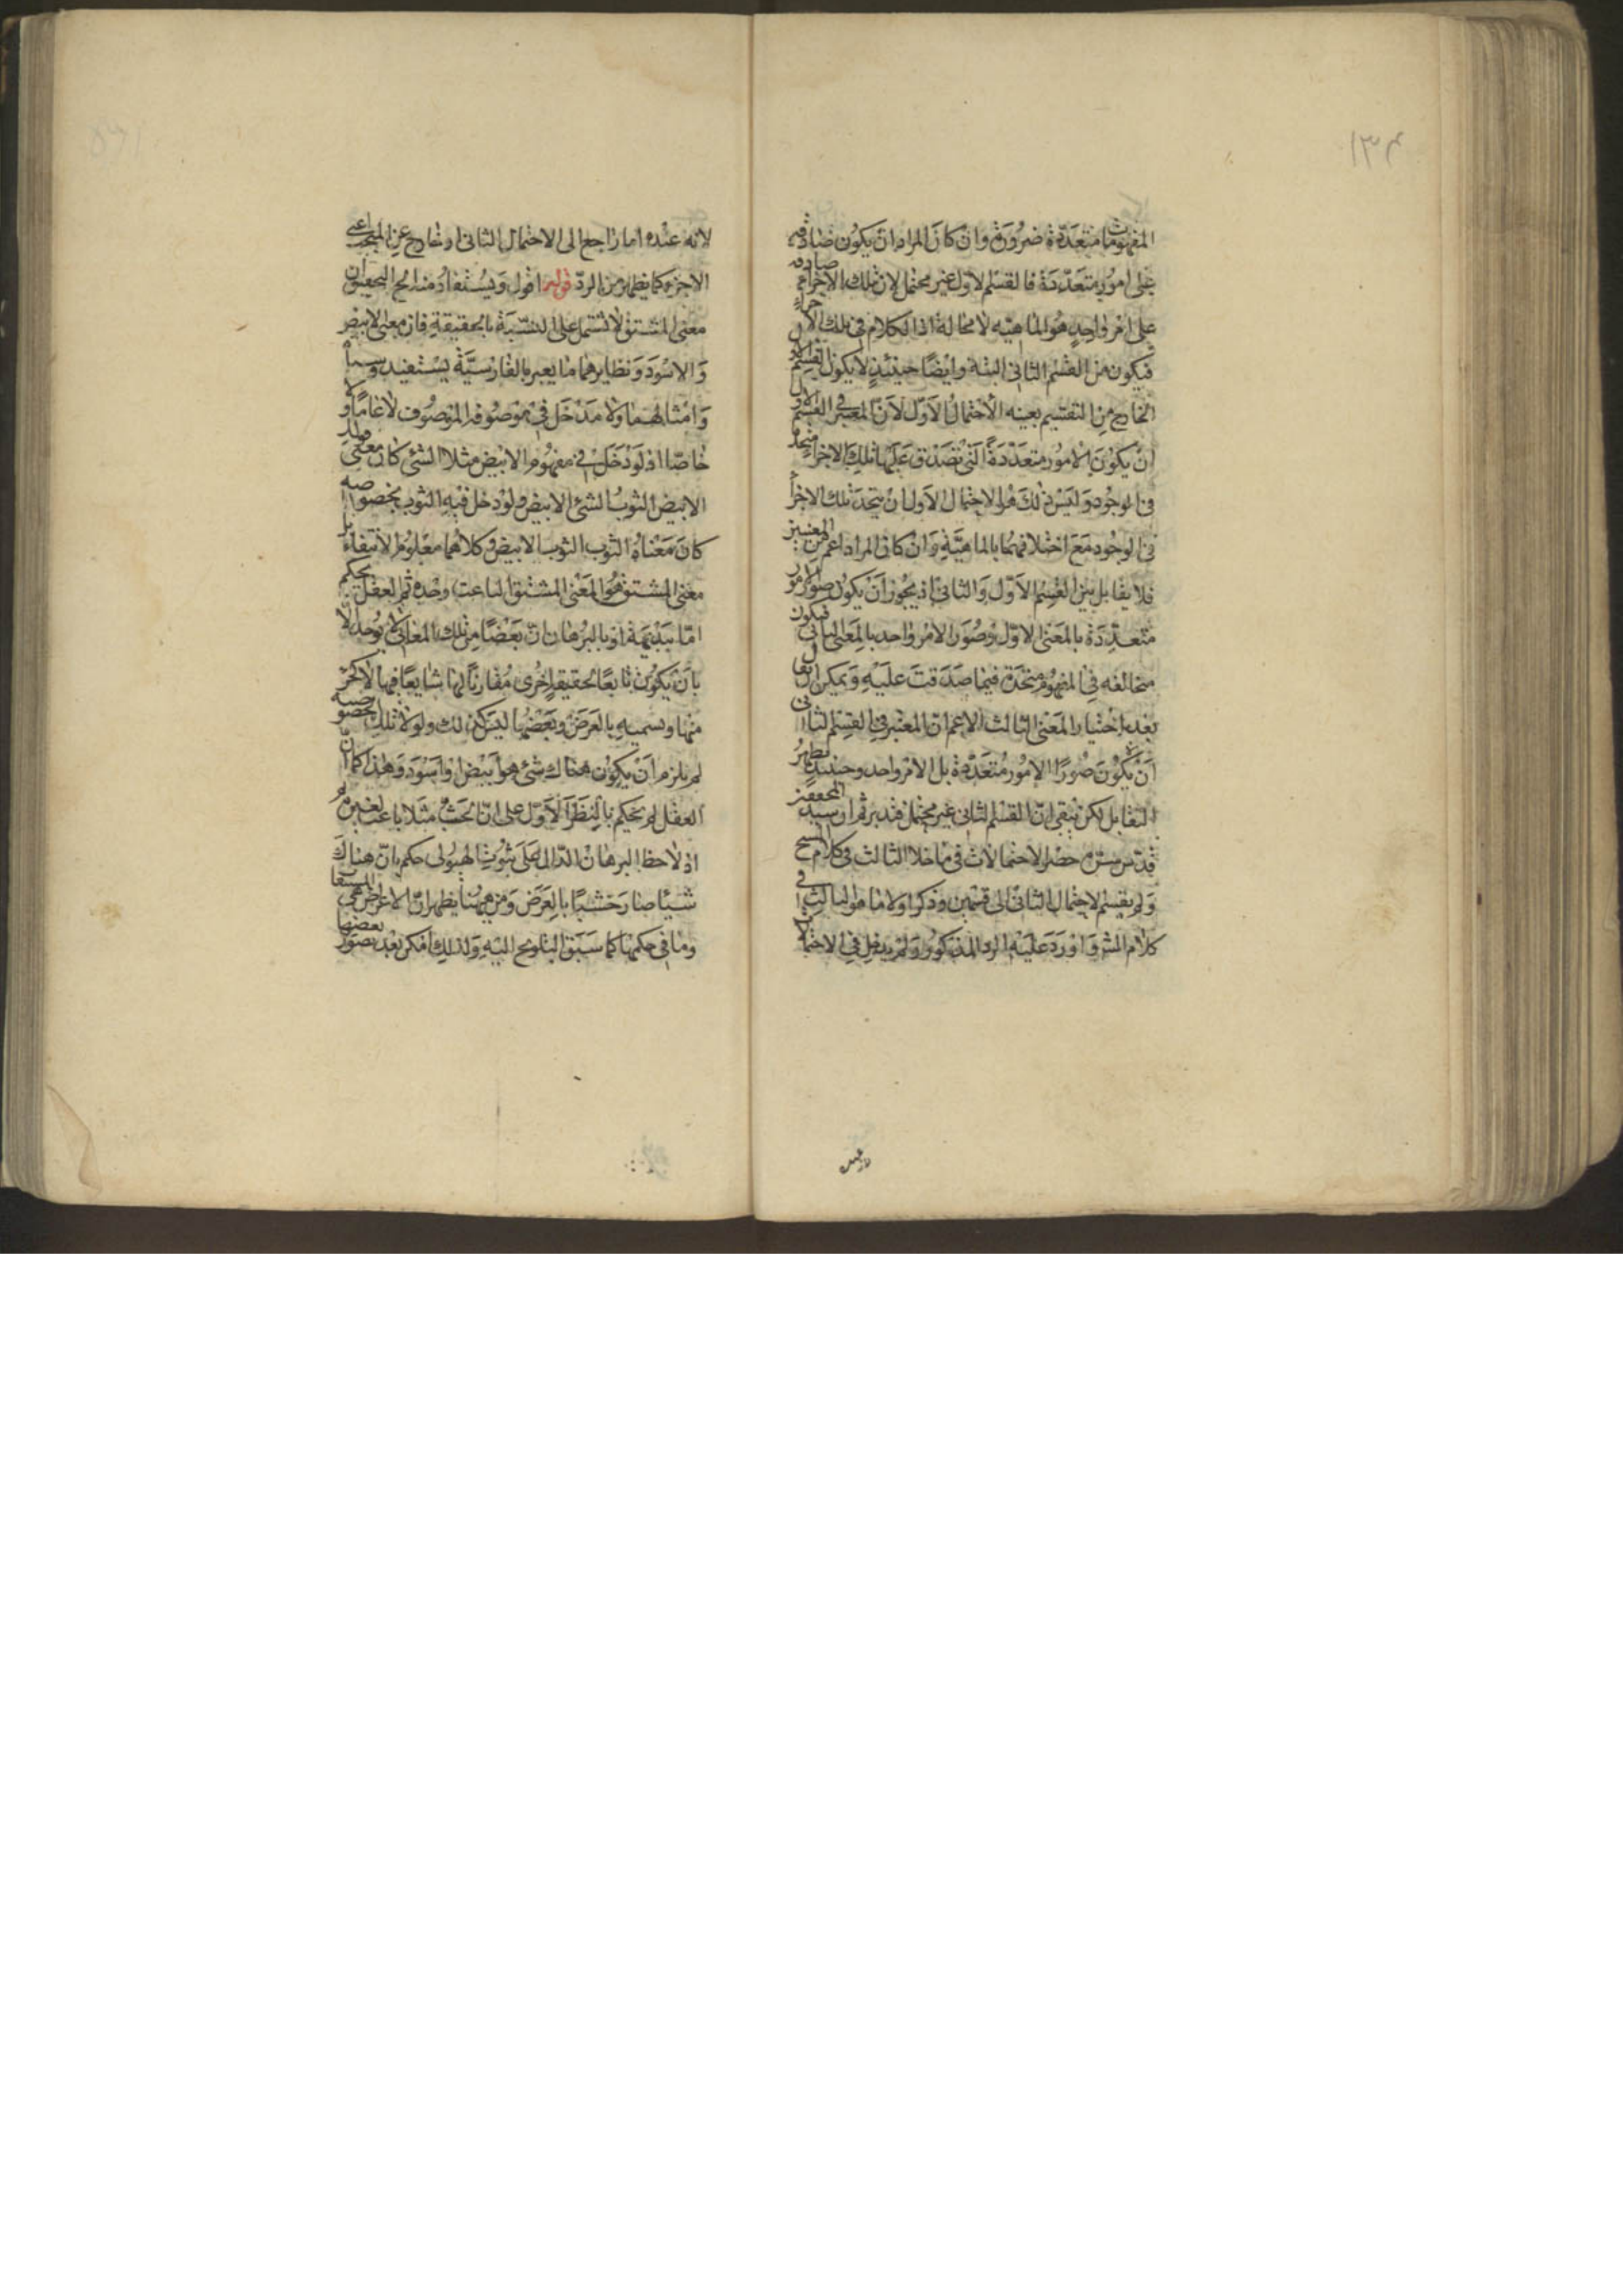 ١٣٤
المفهومات متعددة ضرورة وان كان المراد ان يكون صادقه
على امور متعددة فالقسم الاول غير محتمل لان تلك الاجزاء صادقه
على امر واحد هو الماهية لا محالة اذ الكلام فى تلك الاجزاء
فيكون من القسم الثانى البتة وايضا حينئذ لا يكون القسم
الخارج من التقسيم بعينه الاحتمال الاول لان المعتبر فى القسم الاول
ان يكون الامور متعددة التى تصدق عليها تلك الاجزاء متحد
فى الوجود وليس ذلك هو الاحتمال الاول ان يتحد تلك الاجزأ
فى الوجود مع اختلافهما بالماهية وان كان المراد اعم من المعنيين
فلا يقابل بين القسم الاول والثانى اذ يجوز ان يكون صور الامور
متعددة بالمعنى الاول وصور الامر واحد بالمعنى الثانى فيكون
مخالفه فى المفهوم متحدة فيما صدقت عليه ويمكن ان يقال
بعد اختيار المعنى الثالث الاعم ان المعتبر فى القسم الثانى
ان يكون صورا لامور متعددة بل لامر واحد وحينئذ يظهر
التقابل لكن يبقى ان القسم الثانى غير محتمل فتدبر ثم ان سيد المحققين
قدس سره حصر الاحتمالات فى ما خلا الثالث فى كلام الشيخ
ولم يقسم الاحتمال الثانى الى قسمين وذكر اولا ما هو الثالث فى
كلام الش واورد عليه الرد المذكور ولم يدخل فى الاحتمال
لانه عنده اما راجع الى الاحتمال الثانى او خارج عن المبحث اعنى
الاجزاء كما يظهر من الرد قوله اقول ويستفاد منه الحج التحقيق ان
معنى المشتق لا تشتمل على النسبة بالحقيقة فان معنى الابيض
والاسود ونظايرهما ما يعبر بالفارسية بسفيد وسياه
وامثالهما ولا مدخل فى موصوفه الموصوف لا عاما ولا
خاصا اذ لو دخل فى مفهوم الابيض مثلا الشئ كان معنى قولك
الابيض الثوب الشئ الابيض ولو دخل فيه الثوب بخصوصه
كان معناه الثوب الثوب الابيض وكلاهما معلوم الانتفاء بل
معنى المشتق هو المعنى المشتق الناعت وحده ثم العقل يحكم
اما ببديهة او بالبرهان ان بعضا من تلك المعانى لا يوجد الا
بان يكون تابعا لحقيقة اخرى مقارنا لها شايعا فيها لا كجزء
منها ويسميه بالعرض وبعضها ليس كذلك ولولا تلك الخصوصيه
لم يلزم ان يكون هناك شئ هو ابيض او اسود وهذا كما ان
العقل لم يحكم بالنظر الاول على ان الخشب مثلا باعث لغيره ثم
اذ لاحظ البرهان الدال على ثبوت الهيولى حكم بان هناك
شيئا صار خشبا بالعرض ومن ههنا يظهر ان الاعراض هى المشتقات
وما فى حكمها كما سبق التلويح اليه ولذلك امكن بعد تصور بعضها